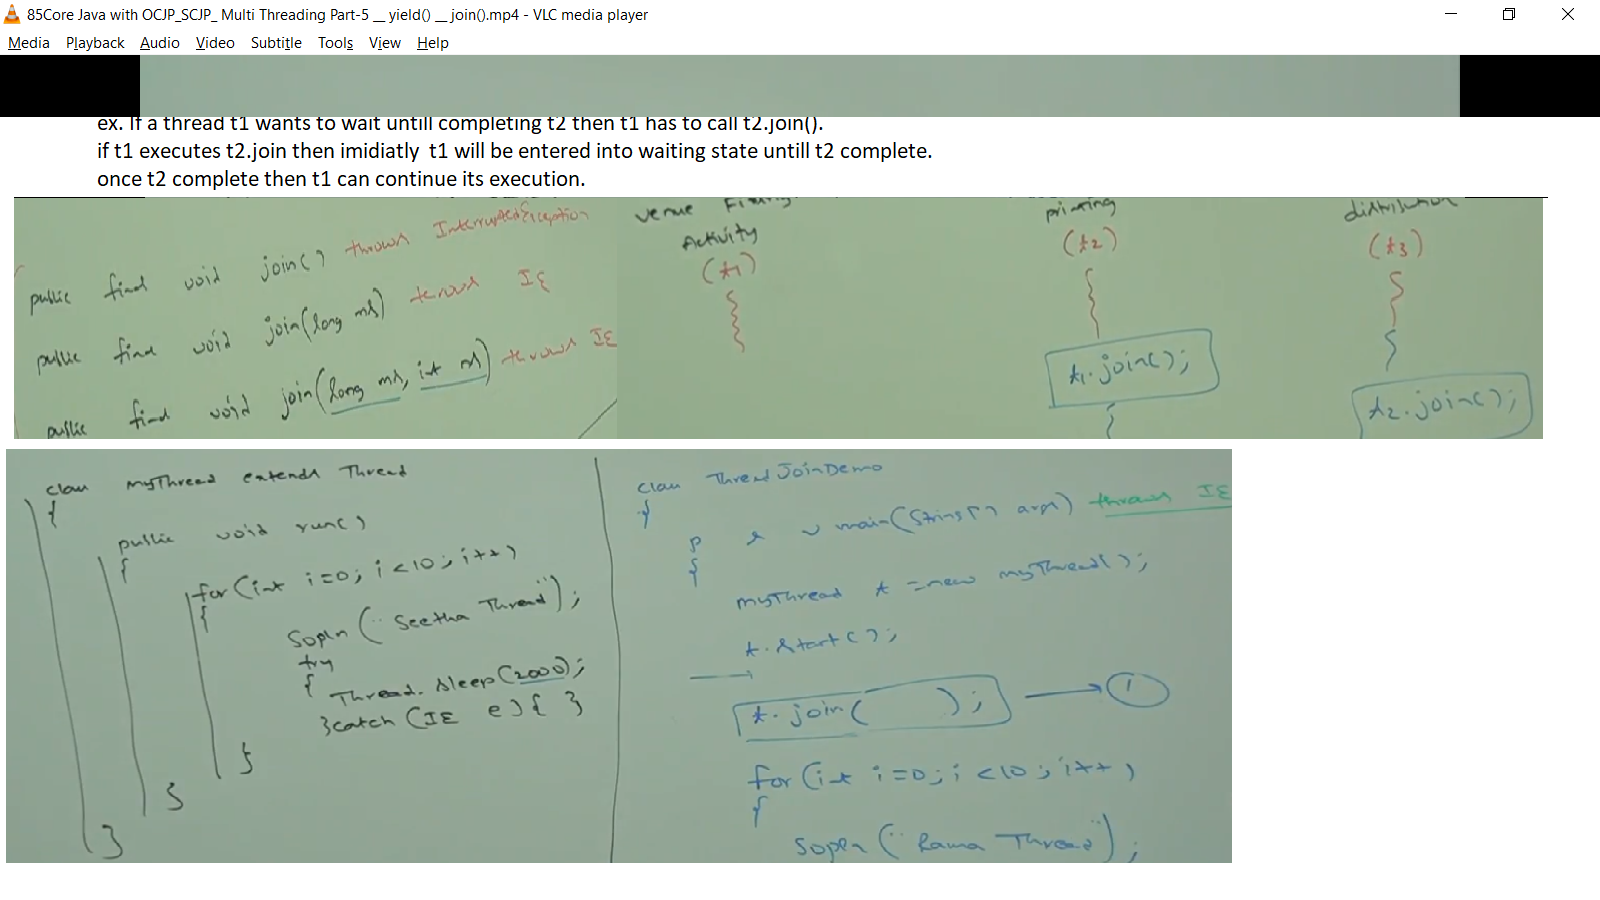 85Core Java with OCJP_SCJP_ Multi Threading Part-5 __ yield() __ join().mp4 - VLC media player
Media Playback Audio Video Subtitle Tools View Help
ex. If a thread t1 wants to wait untill completing t2 then t1 has to call t2.join().
if t1 executes t2.join then imidiatly t1 will be entered into waiting state untill t2 complete.
once t2 complete then t1 can continue its execution.
public final void join() throws InterruptedException
public final void join(long ms) throws IE
public final void join(long ms, int ns) throws IE
venue Fixing
Activity
(t1)
printing
(t2)
t1.join();
distribution
(t3)
t2.join();
class myThread extends Thread
{
public void run()
{
for(int i=0; i<10; i++)
{
Sopln("Seetha Thread");
try
{ Thread.sleep(2000);
}catch (IE e){ }
}
}
}
class ThreadJoinDemo
{
p s v main(String[] args) throws IE
{
myThread t =new myThread();
t.start();
t.join( ); 1
for(int i=0; i<10; i++)
{
Sopln("Rama Thread");